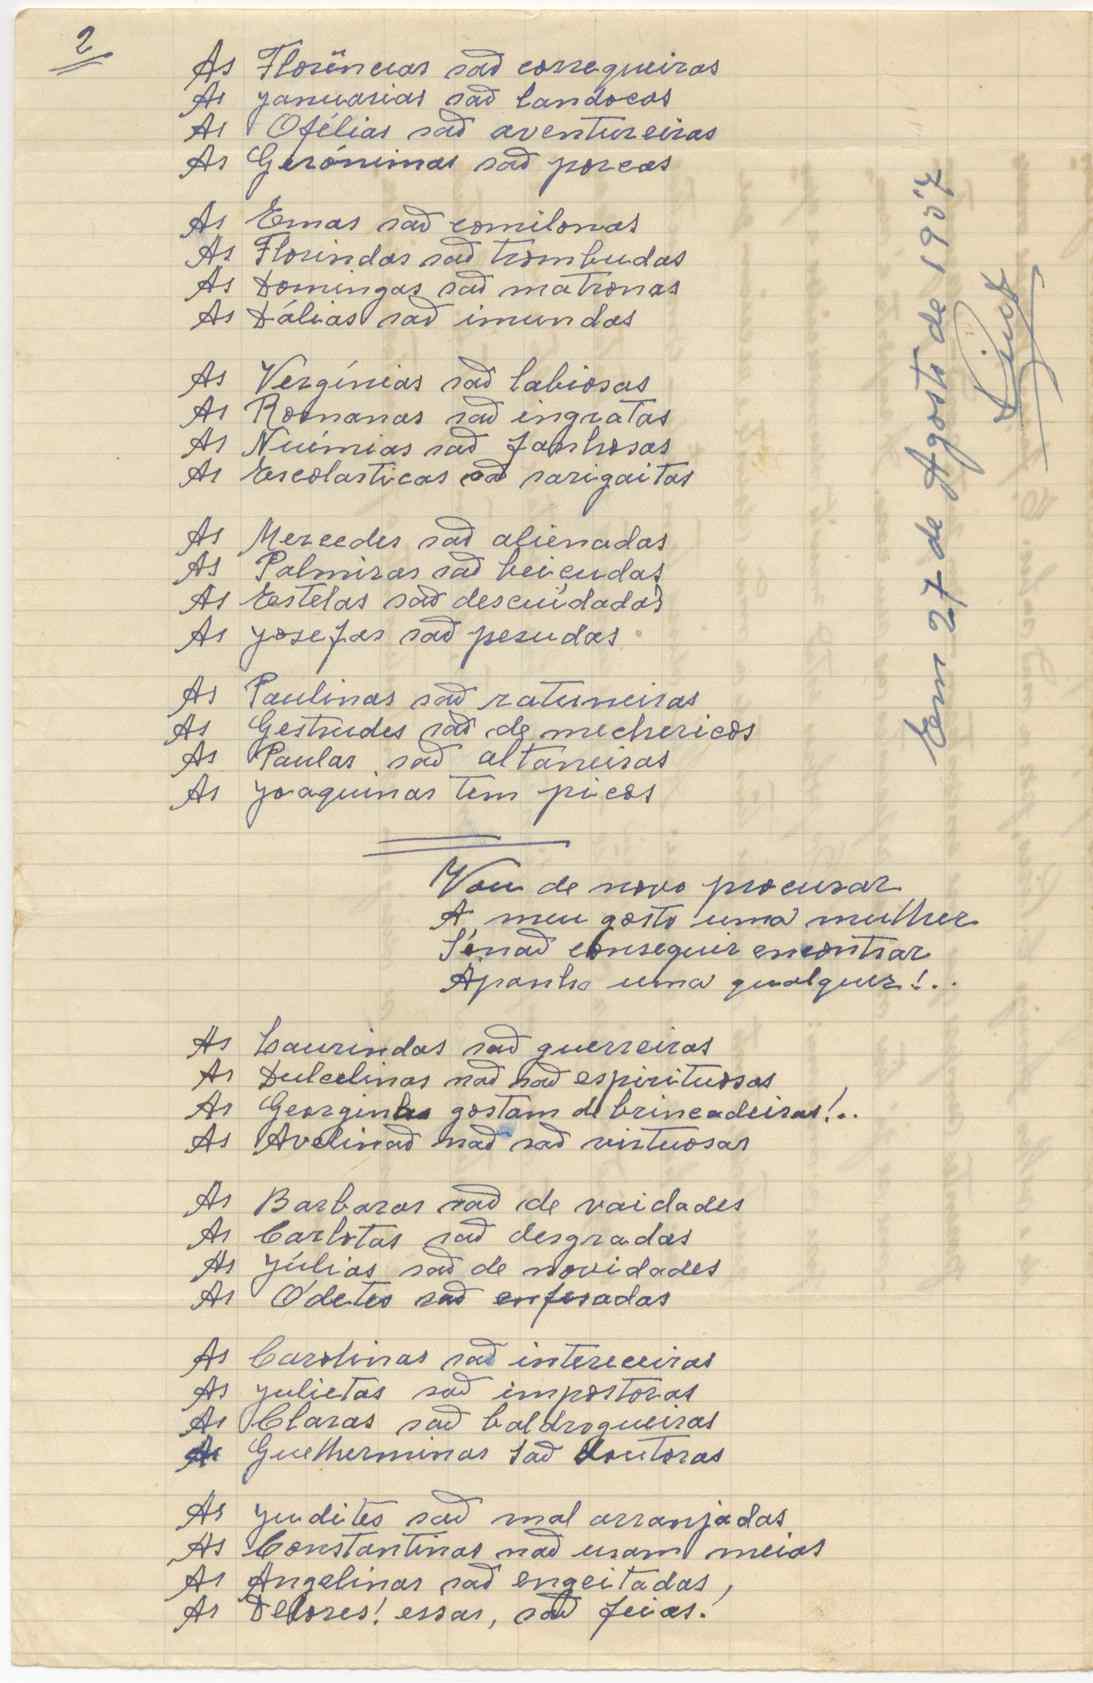 2
As Florências são corriqueiras
As Januarias são landocas
As Ofélias são aventureiras
As Gerónimas são porcas
As Emas são comilonas
As Florindas são trombudas
As Domingas são matronas
As Dálias são imundas
As Vergínias são labiosas
As Romanas são ingratas
As Nuémias são fanhosas
As Escolasticas são sarigaitas
As Mercedes são alienadas
As Palmiras são beiçudas
As Estelas são descuidadas
As Josefas são pesudas
As Paulinas são ratuneiras
As Gestrudes são de mechericos
As Paulas são altaneiras
As Joaquinas tem picos
Vou de novo procurar
A meu gosto uma mulher
Se não conseguir encontrar
Apanho uma qualquer!..
As Laurindas são guerreiras
As Dulcelinas não são espirituosas
As Georginas gostam de brincadeiras!..
As Avelinas não são virtuosas
As Barbaras são de vaidades
As Carlotas são desgradas
As Júlias são de novidades
As Ódetes são enfesadas
As Carolinas são intereceiras
As Julietas são impostoras
As Claras são baldrogueiras
As Guelherminas são doutoras
As Judites são mal arranjadas
As Constantinas não usam meias
As Angelinas são engeitadas,
As Delores! essas, são feias.
Em 27 de Agosto de 1957